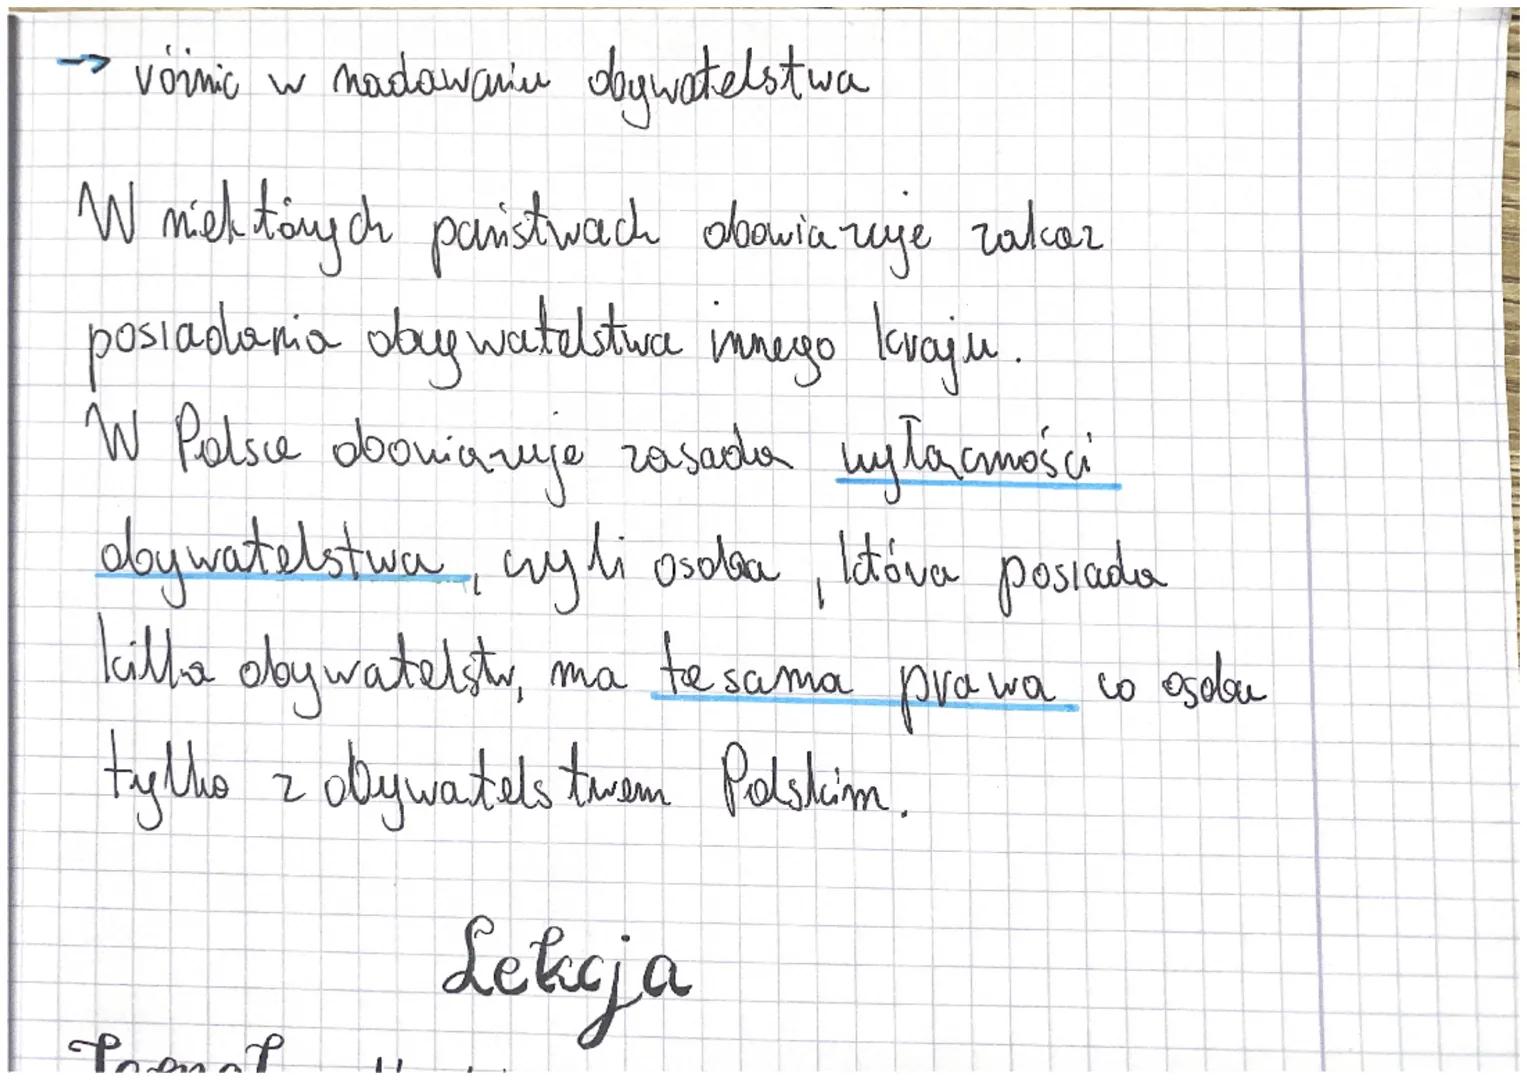 → różnic w nadawaniu obywatelstwa
W niektórych państwach obowiązuje zakaz
posiadania obywatelstwa innego kraju.
W Polsce obowiązuje zasada wyłączności
obywatelstwa, czyli osoba, która posiada
kilka obywatelstw, ma te sama prawa co osoba
tylko z obywatelstwem Polskim.
Lekcja
Temat